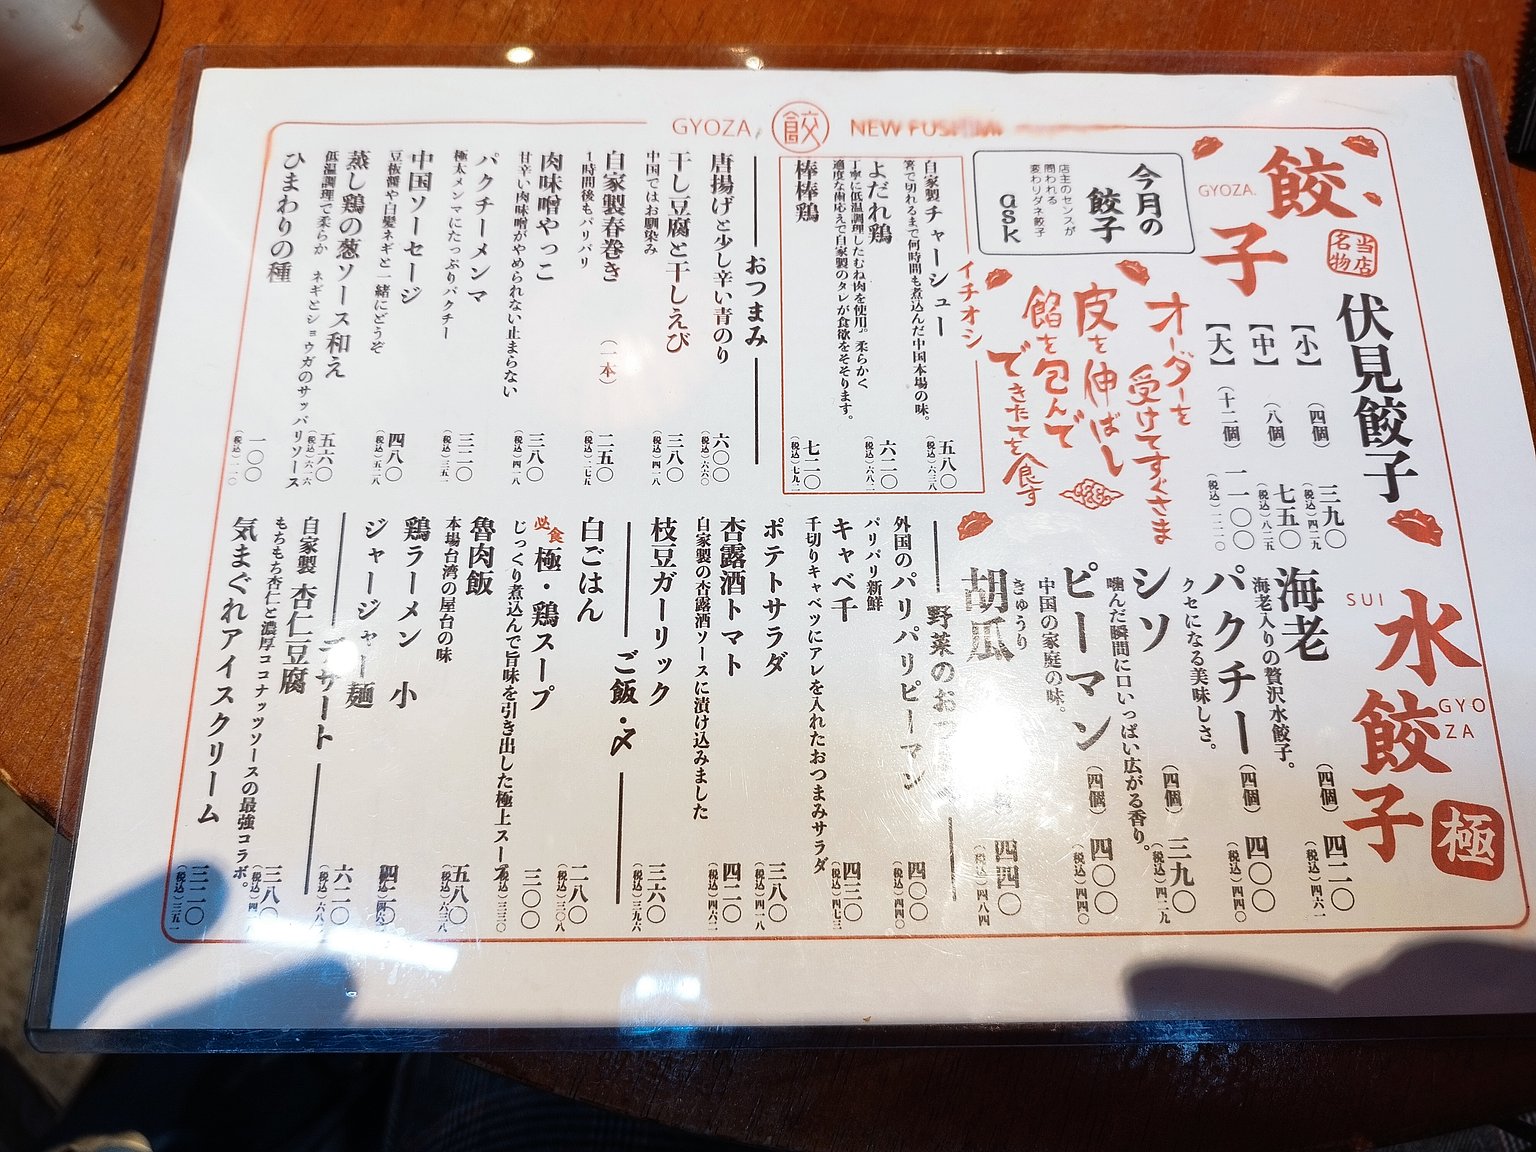 GYOZA
餃
NEW FUSHIMI
餃子
GYOZA.
当店名物
伏見餃子
【小】（四個）三九〇
（税込）四二九
【中】（八個）七五〇
（税込）八二五
【大】（十二個）一一〇〇
（税込）一二一〇
今月の
餃子
店主のセンスが
問われる
変わりダネ餃子
ask
オーダーを
受けてすぐさま
皮を伸ばし
餡を包んで
できたてを食す
イチオシ
自家製チャーシュー 五八〇
箸で切れるまで何時間も煮込んだ中国本場の味。
（税込）六三八
よだれ鶏 六二〇
丁寧に低温調理したむね肉を使用。柔らかく
適度な歯応えで自家製のタレが食欲をそそります。
（税込）六八二
棒棒鶏 七二〇
（税込）七九二
おつまみ
唐揚げと少し辛い青のり 六〇〇
（税込）六六〇
干し豆腐と干しえび 三八〇
中国ではお馴染み
（税込）四一八
自家製春巻き（一本）二五〇
1時間後もパリパリ
（税込）二七五
肉味噌やっこ 三八〇
甘辛い肉味噌がやめられない止まらない
（税込）四一八
パクチーメンマ 三二〇
極太メンマにたっぷりパクチー
（税込）三五二
中国ソーセージ 四八〇
豆板醤や白髪ネギと一緒にどうぞ
（税込）五二八
蒸し鶏の葱ソース和え 五六〇
低温調理で柔らか ネギとショウガのサッパリソース
（税込）六一六
ひまわりの種 一〇〇
（税込）一一〇
SUI
水餃子
GYO
ZA
極
海老（四個）四二〇
海老入りの贅沢水餃子。
（税込）四六二
パクチー（四個）四〇〇
クセになる美味しさ。
（税込）四四〇
シソ（四個）三九〇
噛んだ瞬間に口いっぱい広がる香り。
（税込）四二九
ピーマン（四個）四〇〇
中国の家庭の味。
（税込）四四〇
きゅうり
胡瓜 四四〇
（税込）四八四
野菜のおつ
外国のパリパリピーマン 四〇〇
パリパリ新鮮
（税込）四四〇
キャベ千 四三〇
千切りキャベツにアレを入れたおつまみサラダ
（税込）四七三
ポテトサラダ 三八〇
（税込）四一八
杏露酒トマト 四二〇
自家製の杏露酒ソースに漬け込みました
（税込）四六二
枝豆ガーリック 三六〇
（税込）三九六
ご飯・〆
白ごはん 二八〇
（税込）三〇八
必食 極・鶏スープ 三〇〇
じっくり煮込んで旨味を引き出した極上スープ
（税込）三三〇
魯肉飯 五八〇
本場台湾の屋台の味
（税込）六三八
鶏ラーメン 小 四二〇
ジャージャー麺 六二〇
デザート
自家製 杏仁豆腐 三八〇
もちもち杏仁と濃厚ココナッツソースの最強コラボ。
気まぐれアイスクリーム 三二〇
（税込）三五二